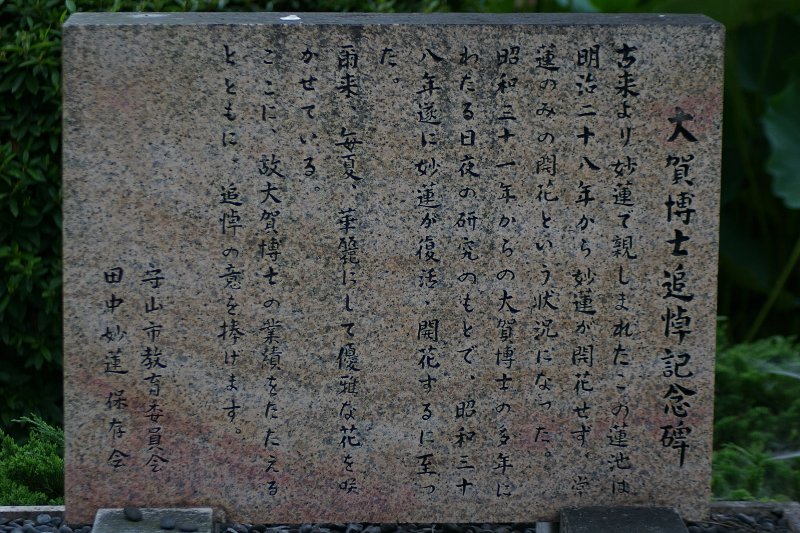 大賀博士追悼記念碑
古来より妙蓮で親しまれたこの蓮池は
明治二十八年から妙蓮が開花せず。常
蓮のみの開花という状況になった。
昭和三十一年からの大賀博士の多年に
わたる日夜の研究のもとで、昭和三十
八年遂に妙蓮が復活、開花するに至っ
た。
爾来、毎夏、華麗にして優雅な花を咲
かせている。
ここに、故大賀博士の業績をたたえる
とともに、追悼の意を捧げます。
守山市教育委員会
田中妙蓮保存会